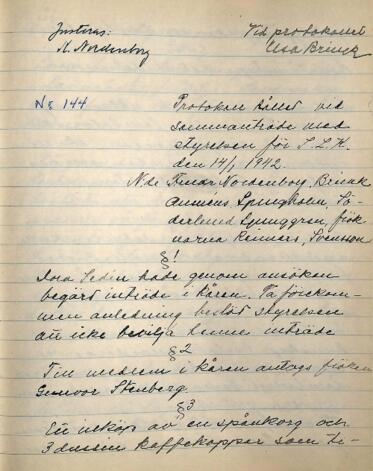 Justeras: Vid protokollet
N. Nordenborg Elsa Brinck
No 144 Protokoll hållet vid
sammanträde med
styrelsen för S.L.K.
den 14/1 1942.
N.de Fruar Nordenborg, Brinck
Ljungholm, Sö-
derlund Ljunggren, frök-
narna Reimers, Svensson
§1
Sedin hade genom ansökan
begärt inträde i kåren. Ta förekom-
men anledning beslöt styrelsen
att icke bevilja henne inträde
§2
Till medlem i kåren antogs fröken
Gunvor Stenberg.
§3
Ett inköp av en spånkorg och
3 dussin kaffekoppar som ti-